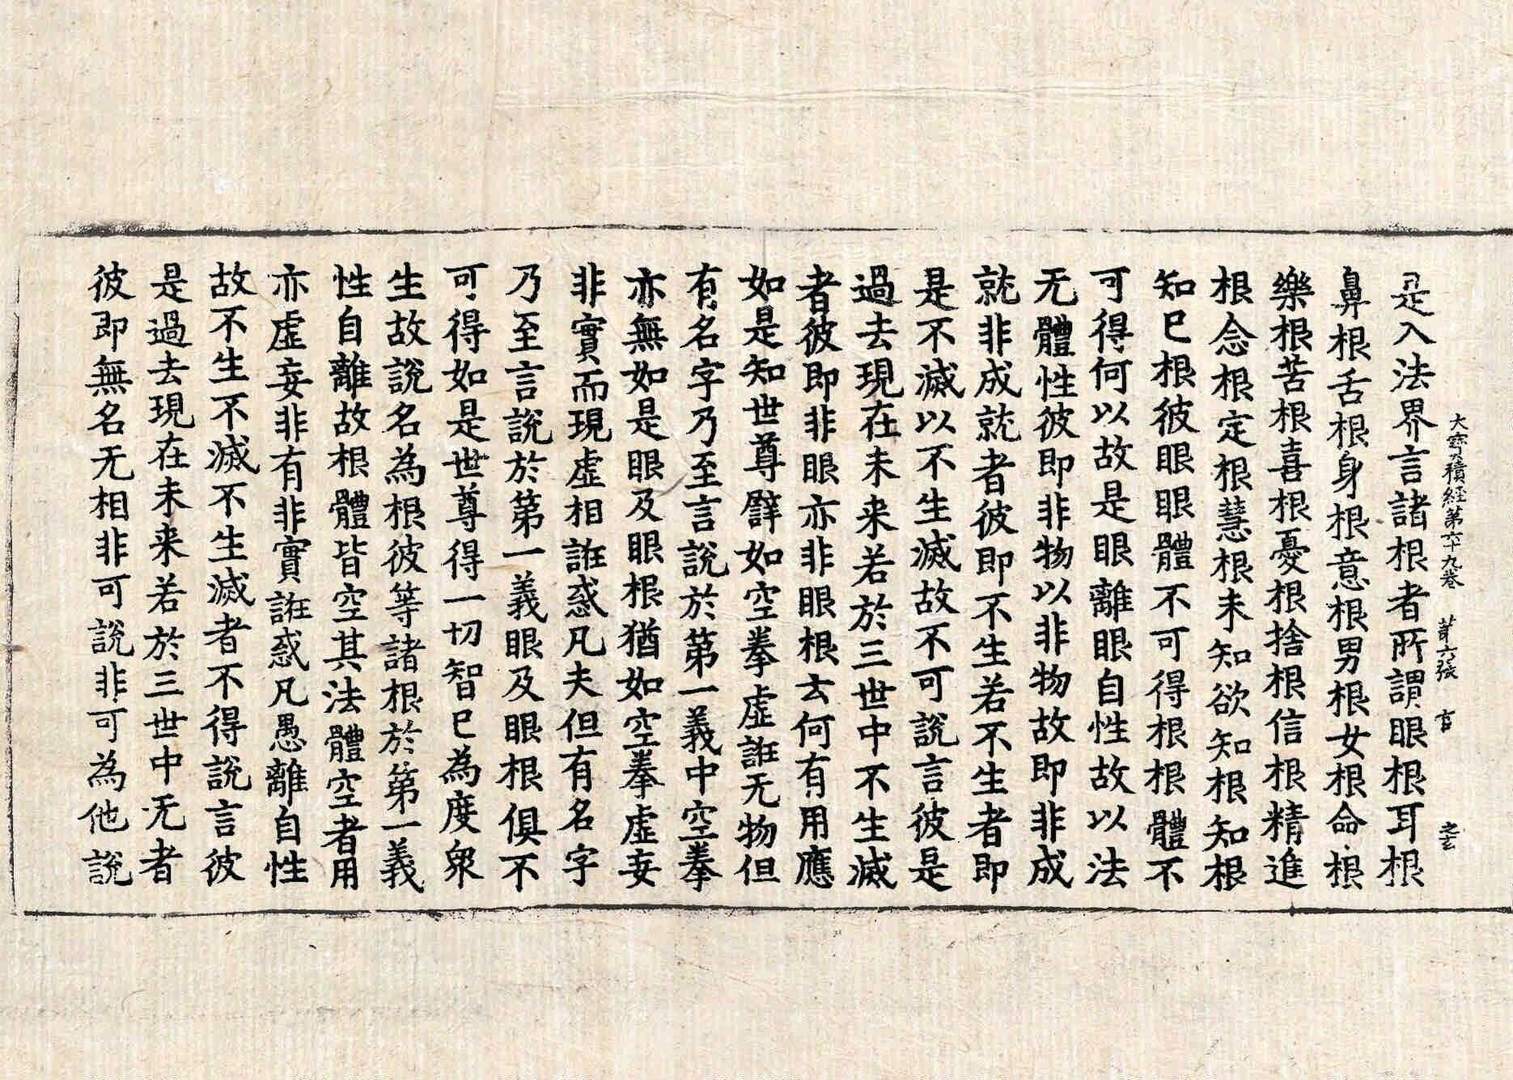 大寶積經第六十九卷 第六張 言
是入法界言諸根者所謂眼根耳根
鼻根舌根身根意根男根女根命根
樂根苦根喜根憂根捨根信根精進
根念根定根慧根未知欲知根知根
知已根彼眼眼體不可得根根體不
可得何以故是眼離眼自性故以法
无體性彼即非物以非物故即非成
就非成就者彼即不生若不生者即
是不滅以不生滅故不可說言彼是
過去現在未来若於三世中不生滅
者彼即非眼亦非眼根云何有用應
如是知世尊譬如空拳虛誑无物但
有名字乃至言說於第一義中空拳
亦無如是眼及眼根猶如空拳虛妄
非實而現虛相誑惑凡夫但有名字
乃至言說於第一義眼及眼根俱不
可得如是世尊得一切智已為度衆
生故說名為根彼等諸根於第一義
性自離故根體皆空其法體空者用
亦虛妄非有非實誑惑凡愚離自性
故不生不滅不生滅者不得說言彼
是過去現在未来若於三世中无者
彼即無名无相非可說非可為他說